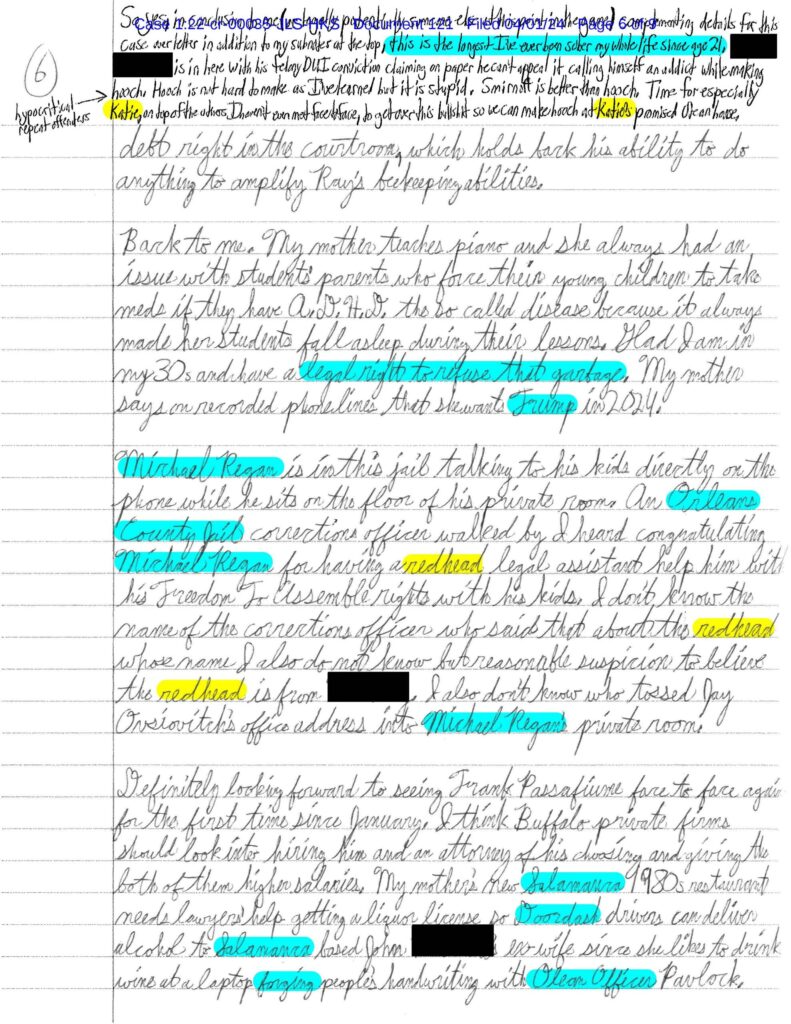 Case 1:22-cr-00085-JLS-HKS Document 121 Filed 04/01/24 Page 6 of 9
So, yes, in conclusion to me details for this
case over letter in addition to my submitter at the top, this is the longest I've ever been sober my whole life since age 21.
6
is in here with his felony DUI conviction claiming on paper he can't appeal it calling himself an addict while making
hypocritical
repeat offenders
hooch. Hooch is not hard to make as I've learned but it is stupid. Smirnoff is better than hooch. Time for especially
Katie, on top of the others I haven't even met face to face, to get over this bullshit so we can make hooch at Katie's promised Olean house.
debt right in the courtroom, which holds back his ability to do
anything to amplify Ray's beekeeping abilities.
Back to me. My mother teaches piano and she always had an
issue with students' parents who force their young children to take
meds if they have A.D.H.D. the so called disease because it always
made her students fall asleep during their lessons. Glad I am in
my 30s and have a legal right to refuse that garbage. My mother
says on recorded phone lines that she wants Trump in 2024.
Michael Regan is in this jail talking to his kids directly on the
phone while he sits on the floor of his private room. An Orleans
County Jail corrections officer walked by I heard congratulating
Michael Regan for having a redhead legal assistant help him with
his Freedom To Assemble rights with his kids. I don't know the
name of the corrections officer who said that about the redhead
whose name I also do not know but reasonable suspicion to believe
the redhead is from . I also don't know who tossed Jay
Ovsiovitch's office address into Michael Regan's private room.
Definitely looking forward to seeing Frank Passafiume face to face again
for the first time since January. I think Buffalo private firms
should look into hiring him and an attorney of his choosing and giving the
both of them higher salaries. My mother's new Salamanca 1980s restaurant
needs lawyers' help getting a liquor license so Doordash drivers can deliver
alcohol to Salamanca based John 's ex-wife since she likes to drink
wine at a laptop forging people's handwriting with Olean Officer Pavlock.